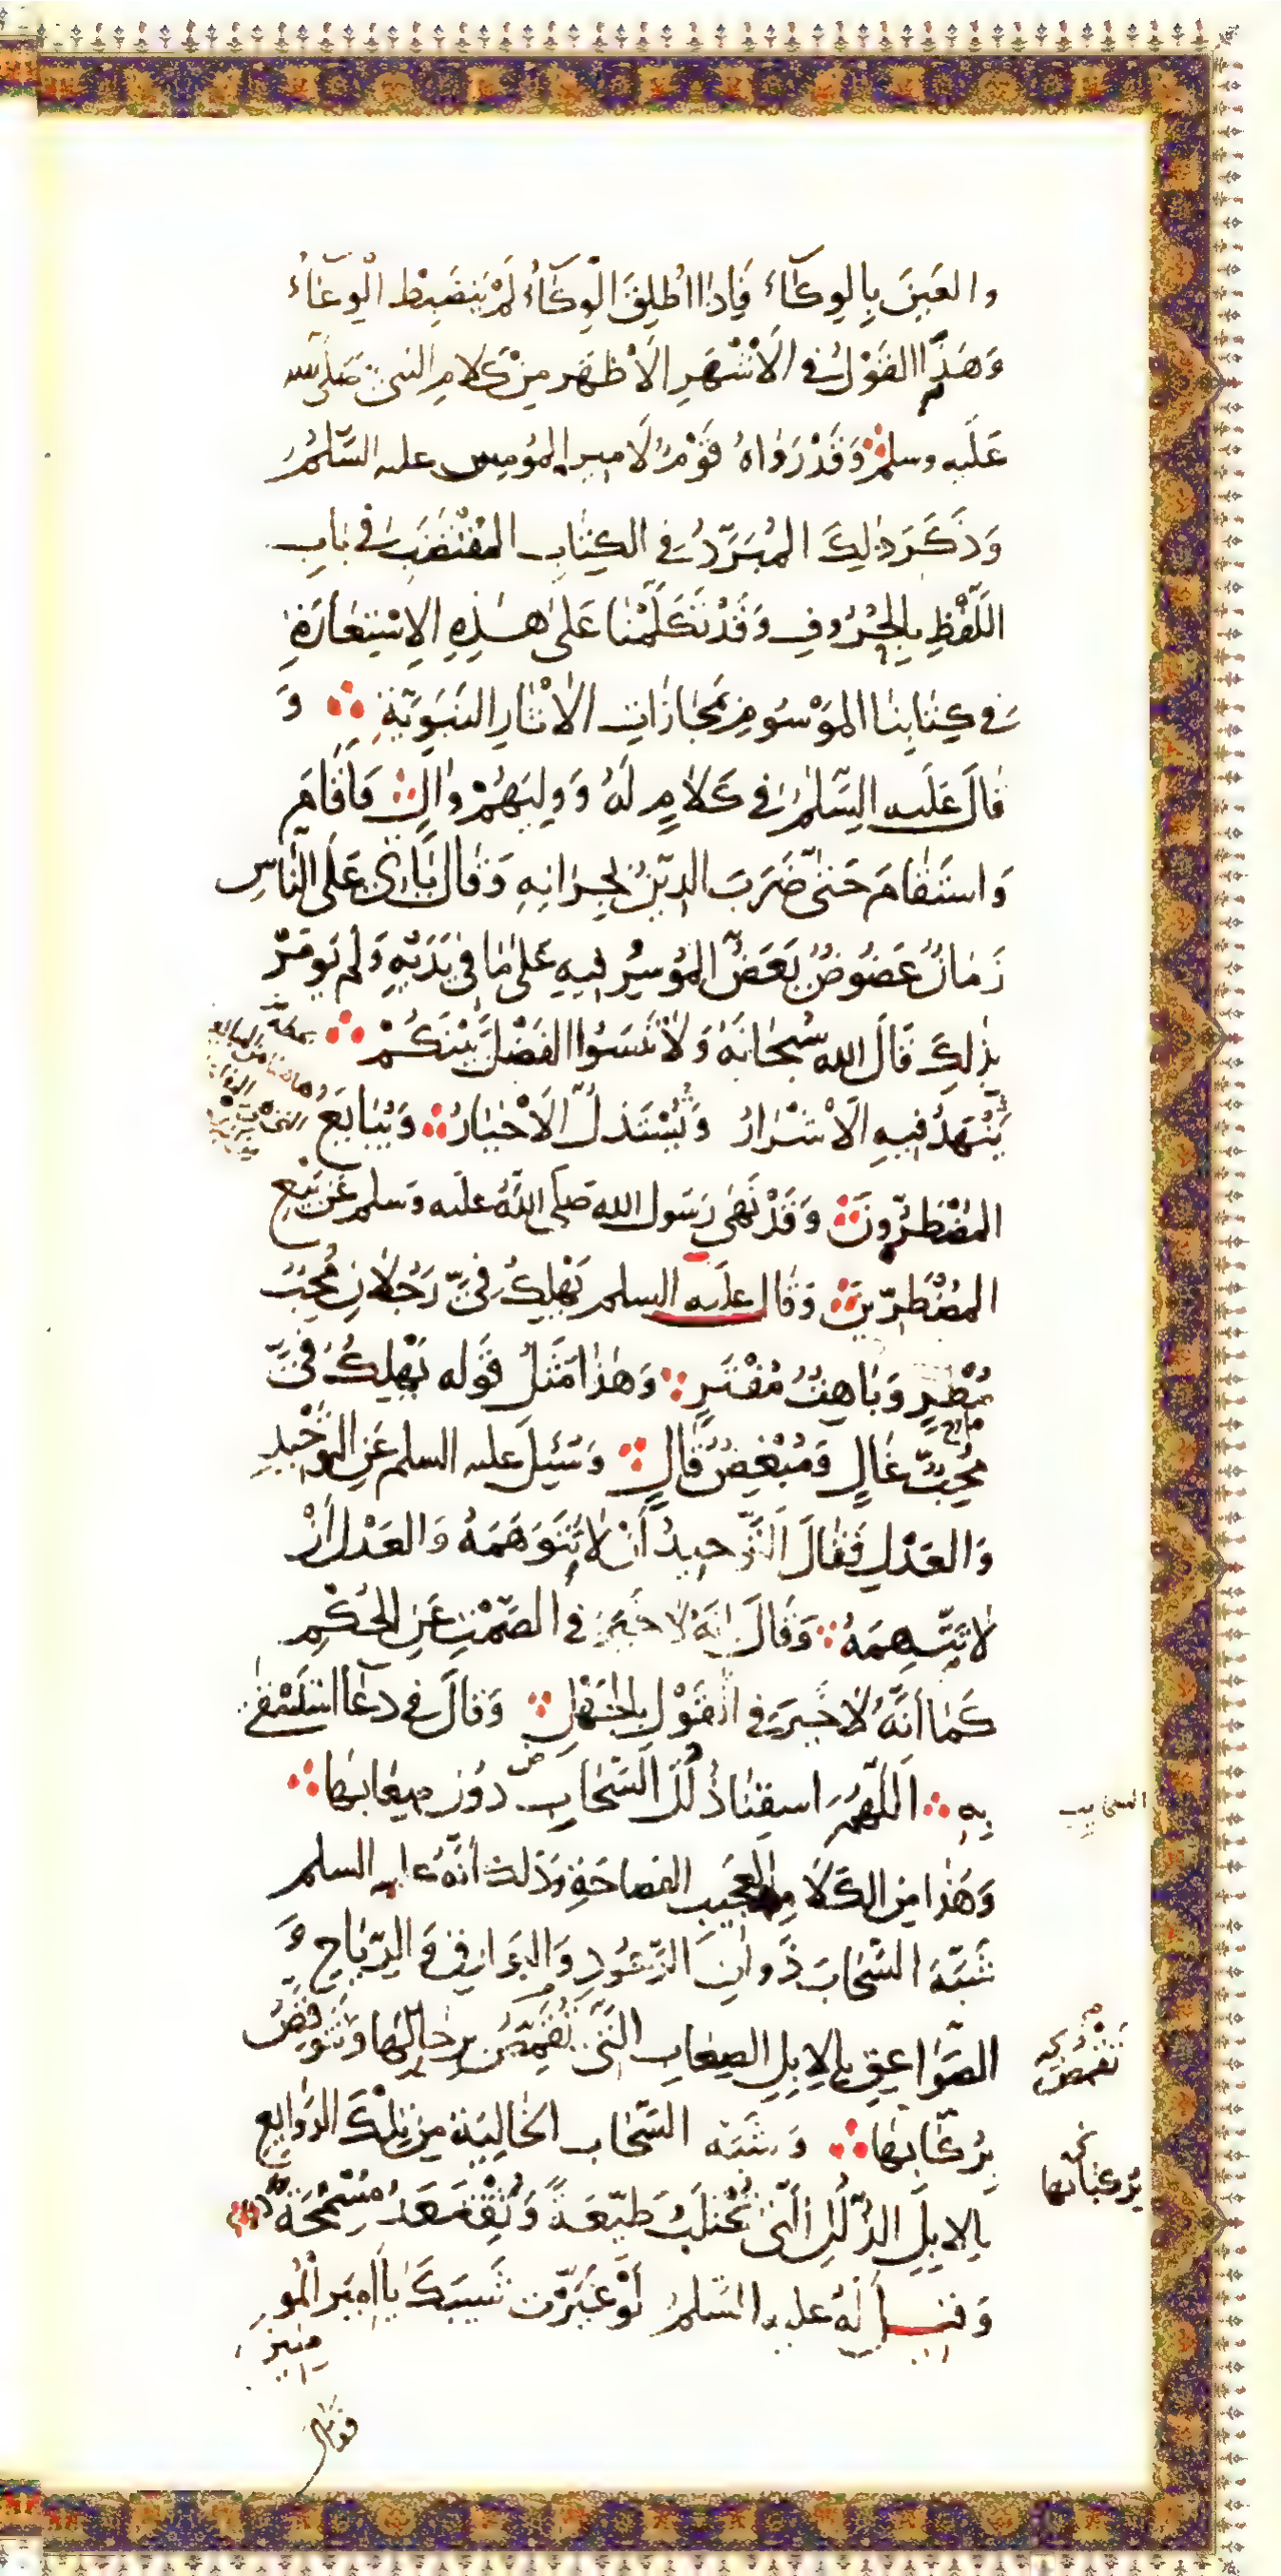 والعَينَ بِالوِكَاءَ فَإِذَا اُطْلِقَ الْوِكَاءُ لَمْ يَنضَبِطِ الْوِعَاءُ
وَهَذَا القَوْلُ فِي الْاَشْهَرِ الْاَظهَرِ مِنْ كَلامِ النبيّ صَلى الله
عَلَيه وسلم وَقَدْ رَوَاهُ قَوْمٌ لاَميرِ المُومنين عليه السَّلمُ
وَذَكَرَ ذٰلِكَ المُبَرَّدُ فِي الكِتٰابِ المُقْتَضَبِ فِي بٰابِ
اللَّفْظِ بِالحُرُوفِ وَقَدْ تَكَلَّمْنٰا عَلىٰ هٰـذِهِ الاِسْتِعٰارَةِ
فِي كِتٰابِنٰا المَوْسُومِ بمَجٰازٰاتِ الاٰثٰارِ النَبَوِيّةِ وَ
قٰالَ عَلَيهِ السَّلمُ فِي كَلاٰمٍ لَهُ وَوَلِيَهُمْ وٰالٍ فَاَقٰامَ
وَاستَقٰامَ حَتىّٰ ضَرَبَ الدّينُ بِجِرٰانِهِ وَقٰالَ يَأتي عَلَى النّٰاسِ
زَمٰانٌ عَضُوضٌ يَعَضُّ المُوسِرُ فيهِ عَلىٰ مٰا في يَدَيْهِ وَلم يُومَرْ
بِذٰلِكَ قَالَ الله سُبْحَانَهُ وَلاٰ تَنْسَوُا الفَضْلَ بَيْنَكُمْ
يَنْهَدُ فيهِ الاَشْرَارُ وَيُسْتَذَلُّ الاَخْيٰارُ وَيُبٰايَعُ
المُضْطَرُّونَ وَقَدْ نَهىٰ رَسُول الله صَلى اللهُ عليه وَسلم عَن بَيْعِ
المُضْطَرّينَ وَقٰال عليه السلم يَهْلِكُ فِيَّ رَجُلاٰنِ مُحِبٌّ
مُطْرٍ وَبٰاهِتٌ مُفْتَرٍ وَهٰذٰا مَثَلُ قَوله يَهْلِكُ فِيَّ
مُحِبٌّ غٰالٍ وَمُبْغِضٌ قٰالٍ وَسُئِلَ عليه السلم عَنِ التَّوْحيدِ
وَالعَدْلِ فَقٰالَ اَلتَّوحيدُ اَنْ لاٰ تَتَوَهَّمَهُ وَالعَدْلُ اَنْ
لاٰ تَتَّهِمَهُ وَقٰالَ اِنَّهُ لاٰ خَيْرَ فِي الصَّمْتِ عَنِ الحُكْمِ
كَمٰا أَنَّهُ لاٰ خَيرَ فِي القَوْلِ بِالجَهْلِ وَقٰالَ فِي دعٰآ استَسْقىٰ
بِهِ اَللّٰهُمَّ اسقِنٰا ذُلُلَ السَّحٰابِ دُونَ صِعٰابِهٰا
السحاب
وَهٰذٰا مِنَ الكَلاٰمِ العَجيبِ الفَصاحَةِ وَذٰلك اَنَّهُ عليه السلم
شَبَّهَ السَّحٰابَ ذَوٰاتِ الرُّعُودِ وَالبَوٰارِقِ وَالرِّيٰاحِ وَ
الصَّوٰاعِقِ بِالاِبِلِ الصِعٰابِ الَّتي تَقْمُصُ بِرِحٰالِهٰا وَتَتَوَقَّصُ
تقمص
بِرُكّٰابِهٰا وَشَبَّهَ السَّحٰاب الخٰالِيَةَ مِن تِلْكَ الرَوٰايِعِ
بركبانها
بِالاِبِلِ الذُّلُلِ الَّتي تُحْتلَبُ طَيِّعَةً وَتُقْتَعَدُ مُسْمِحَةً
وَقيـلَ لَهُ عليه السَّلمُ لَوْ غَيَّرْتَ شَيبَكَ يٰا اَميرَ الْمُو
منينَ
فقال